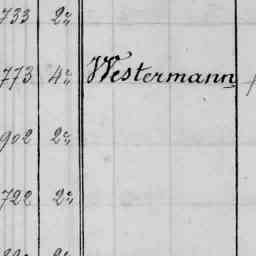 733 2
773 4 Westermann
902 2
722 2